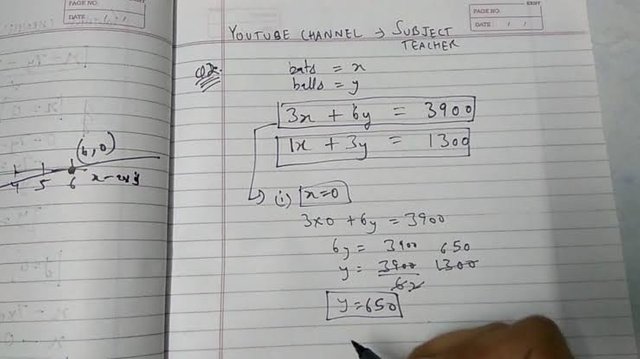 PAGE NO.
DATE
PAGE NO.
DATE / /
YOUTUBE CHANNEL → SUBJECT
TEACHER
Q2.
bats = x
balls = y
3x + 6y = 3900
1x + 3y = 1300
(6, 0)
4 5 6 x-axis
(i) x=0
3x0 + 6y = 3900
6y = 3900 650
y = 3900 1300
62
y=650